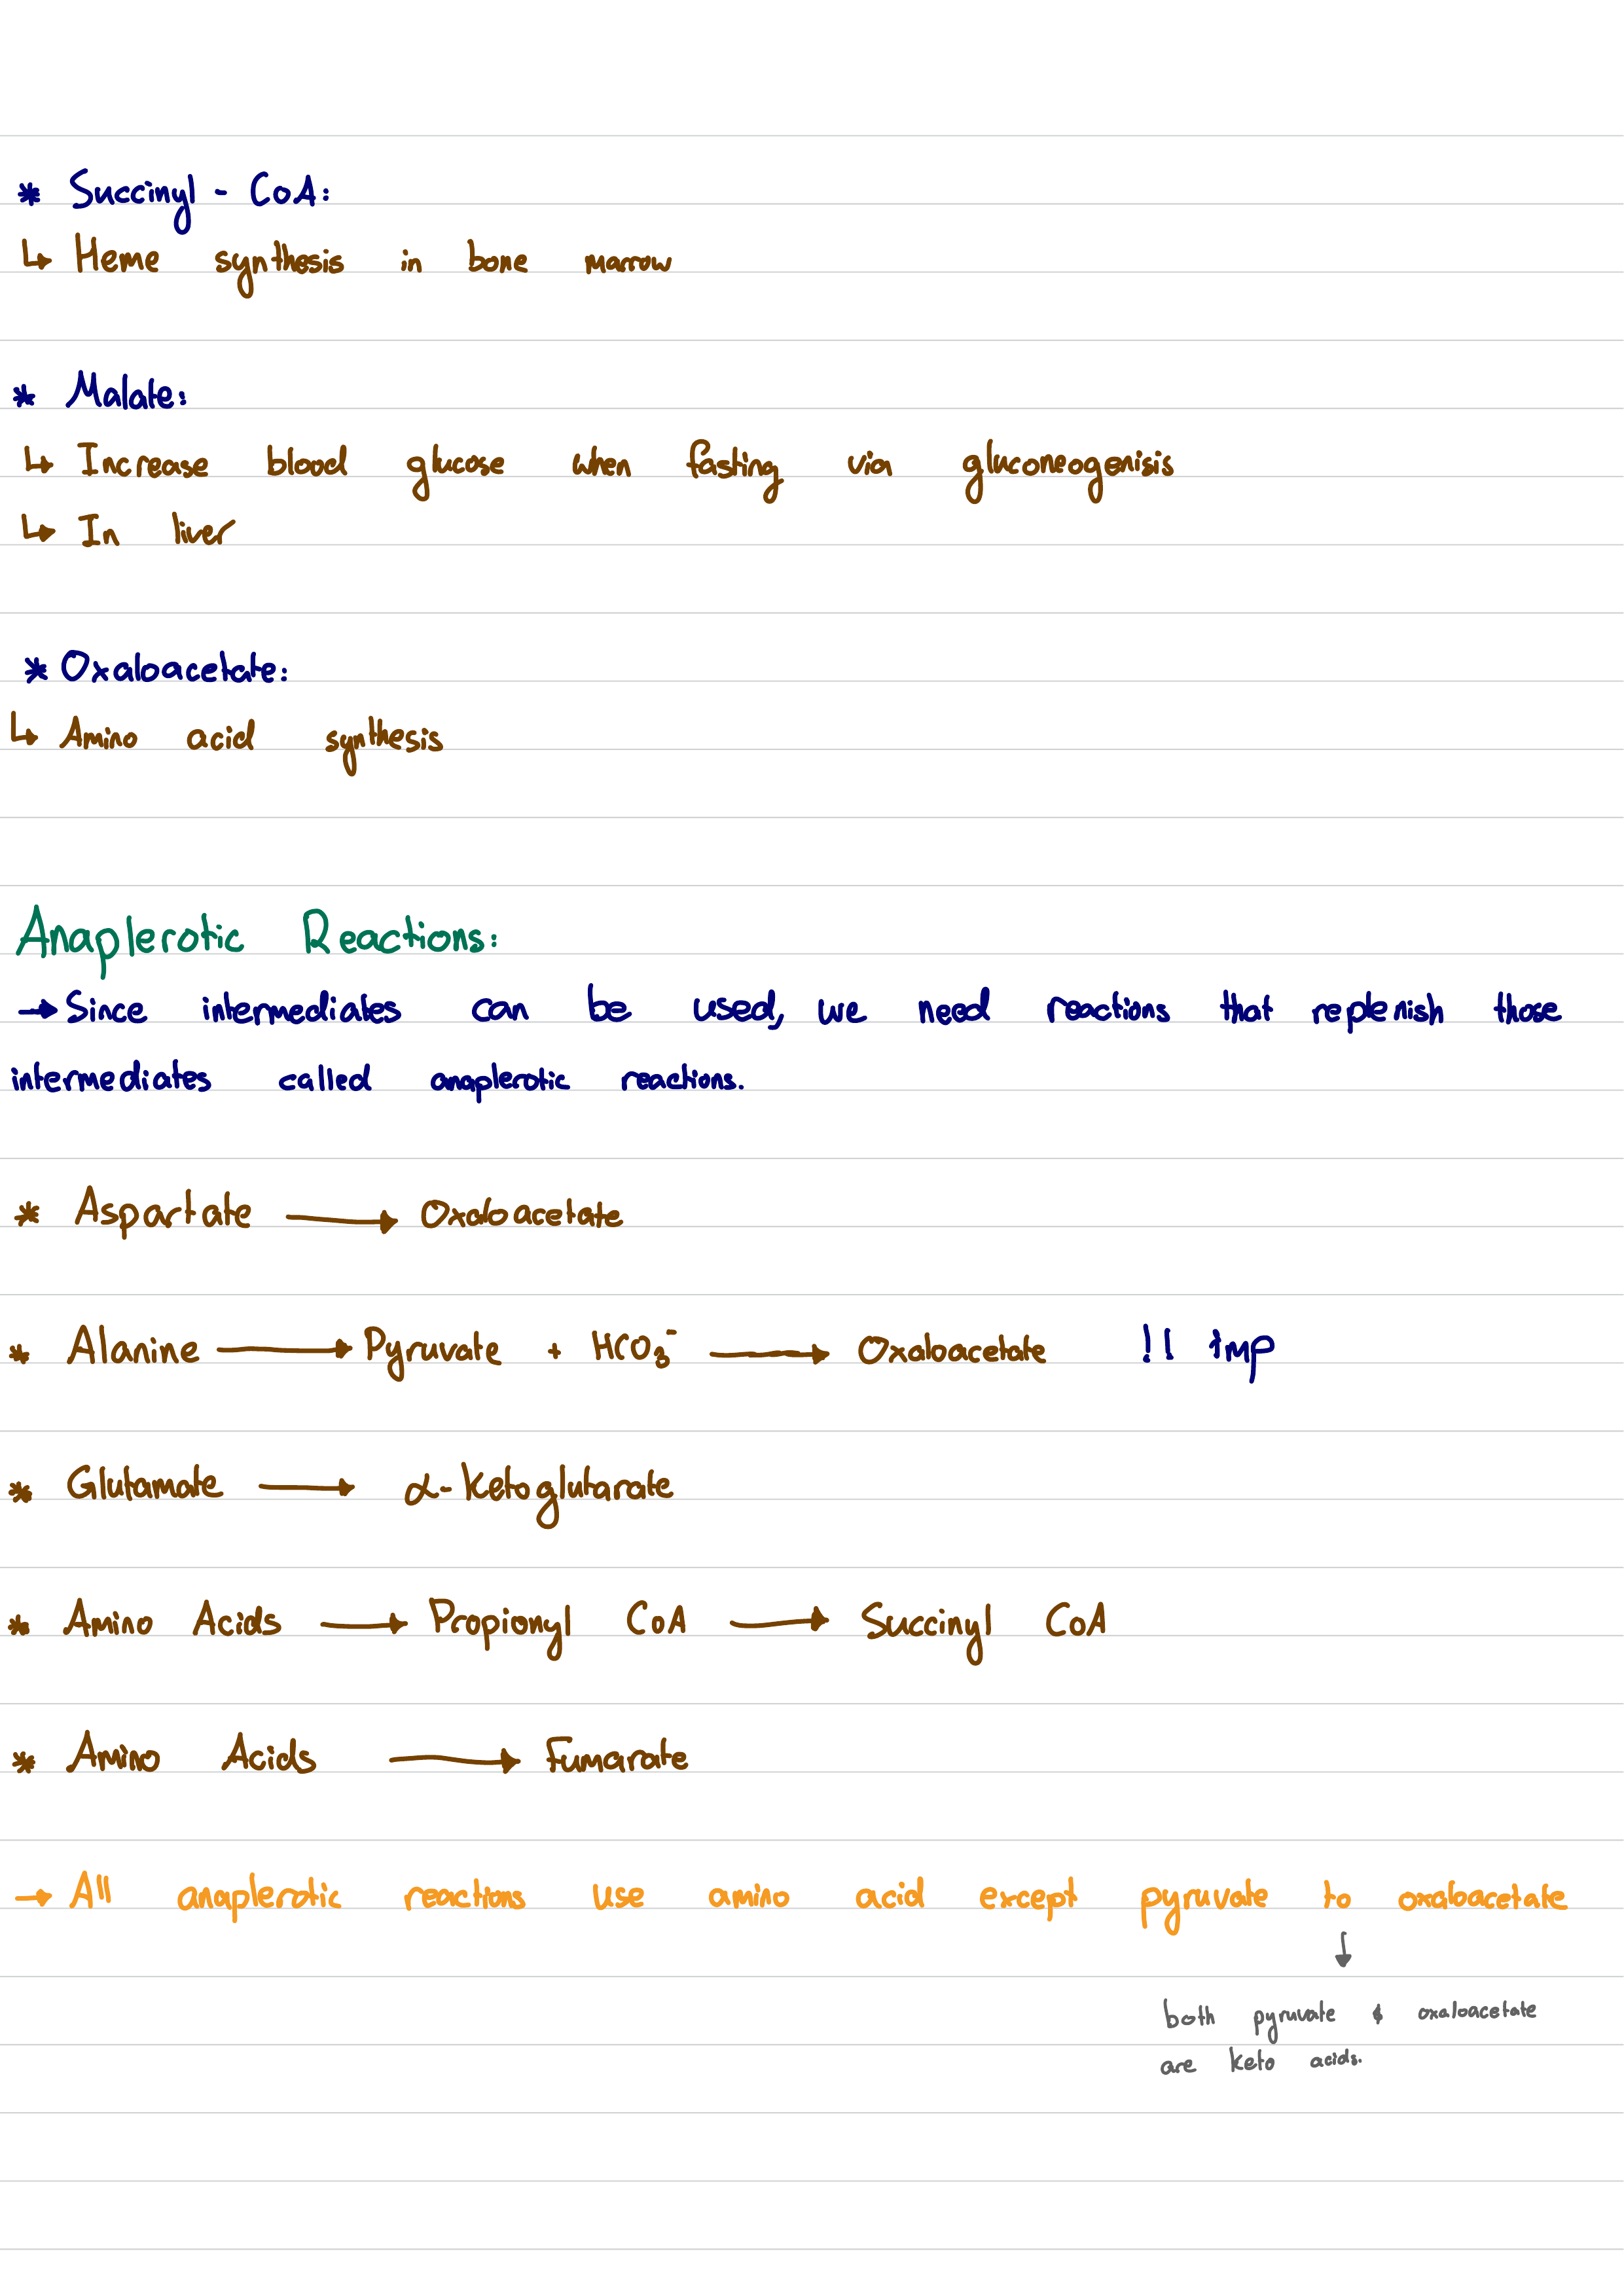 * Succinyl - CoA:
↳ Heme synthesis in bone marrow
* Malate:
↳ Increase blood glucose when fasting via gluconeogenisis
↳ In liver
* Oxaloacetate:
↳ Amino acid synthesis
Anaplerotic Reactions:
→ Since intermediates can be used, we need reactions that replenish those
intermediates called anaplerotic reactions.
* Aspartate → Oxaloacetate
* Alanine → Pyruvate + HCO₃⁻ → Oxaloacetate !! imp
* Glutamate → α-Ketoglutarate
* Amino Acids → Propionyl CoA → Succinyl CoA
* Amino Acids → Fumarate
→ All anaplerotic reactions use amino acid except pyruvate to oxaloacetate
↓
both pyruvate & oxaloacetate
are keto acids.